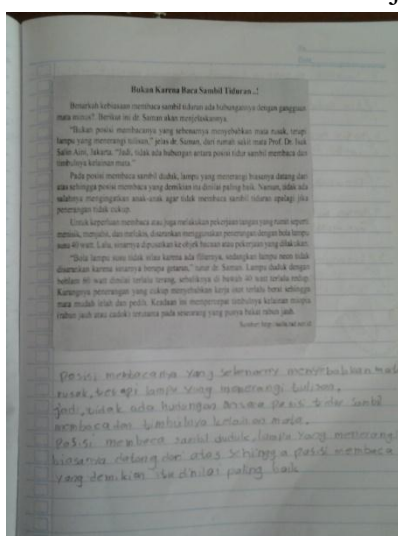 Bukan Karena Baca Sambil Tiduran..!
Benarkah kebiasaan membaca sambil tiduran ada hubungannya dengan gangguan
mata minus? Berikut ini dr. Saman akan menjelaskannya.
"Bukan posisi membacanya yang sebenarnya menyebabkan mata rusak, tetapi
lampu yang menerangi tulisan," jelas dr. Saman, dari rumah sakit mata Prof. Dr. Isak
Salim Aini, Jakarta. "Jadi, tidak ada hubungan antara posisi tidur sambil membaca dan
timbulnya kelainan mata."
Pada posisi membaca sambil duduk, lampu yang menerangi biasanya datang dari
atas sehingga posisi membaca yang demikian itu dinilai paling baik. Namun, tidak ada
salahnya mengingatkan anak-anak agar tidak membaca sambil tiduran apalagi jika
penerangan tidak cukup.
Untuk keperluan membaca atau juga melakukan pekerjaan tangan yang rumit seperti
menisik, menjahit, dan melukis, disarankan menggunakan penerangan dengan bola lampu
susu 40 watt. Lalu, sinarnya dipusatkan ke objek bacaan atau pekerjaan yang dilakukan.
"Bola lampu susu tidak silau karena ada filternya, sedangkan lampu neon tidak
disarankan karena sinarnya berupa getaran," tutur dr. Saman. Lampu duduk dengan
bohlam 60 watt dinilai terlalu terang, sebaliknya di bawah 40 watt terlalu redup.
Kurangnya penerangan yang cukup menyebabkan kerja otot terlalu berat sehingga
mata mudah lelah dan pedih. Keadaan ini mempercepat timbulnya kelainan miopia
(rabun jauh atau cadok) terutama pada seseorang yang punya bakat rabun jauh.
Sumber: http:
Posisi membacanya yang sebenarnya menyebabkan mata
rusak, tetapi lampu yang menerangi tulisan.
Jadi, tidak ada hubungan antara posisi tidur sambil
membaca dan timbulnya kelainan mata.
Posisi membaca sambil duduk, lampu yang menerang
biasanya datang dari atas sehingga posisi membaca
yang demikian itu dinilai paling baik